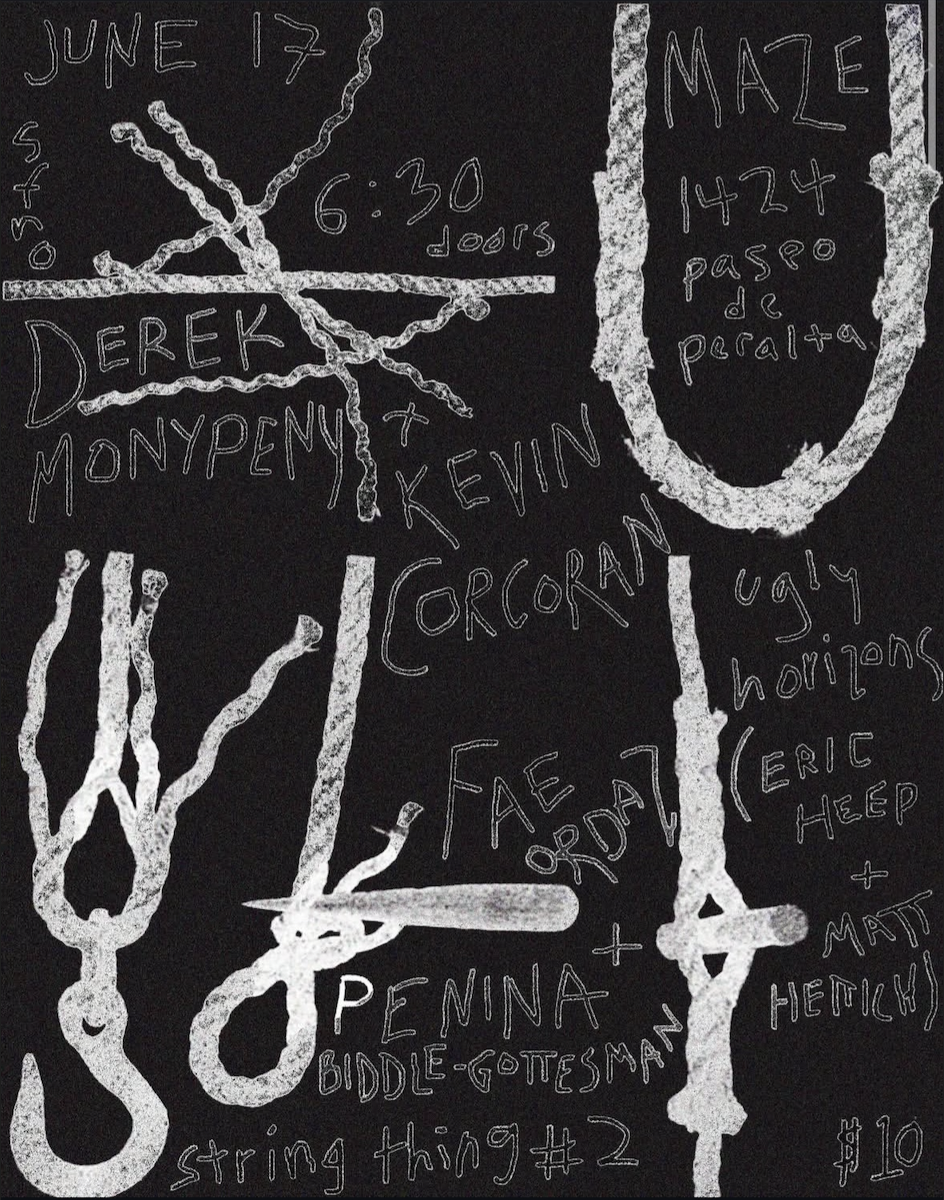 JUNE 17
sfno
6:30
doors
MAZE
1424
paseo
de
peralta
DEREK
MONYPENY
+
KEVIN
CORCORAN
ugly
horizons
(ERIC
HEEP
+
MATT
HETTICH)
FAE
ORDAZ
+
PENINA
BIDDLE-GOTTESMAN
string thing #2
$10